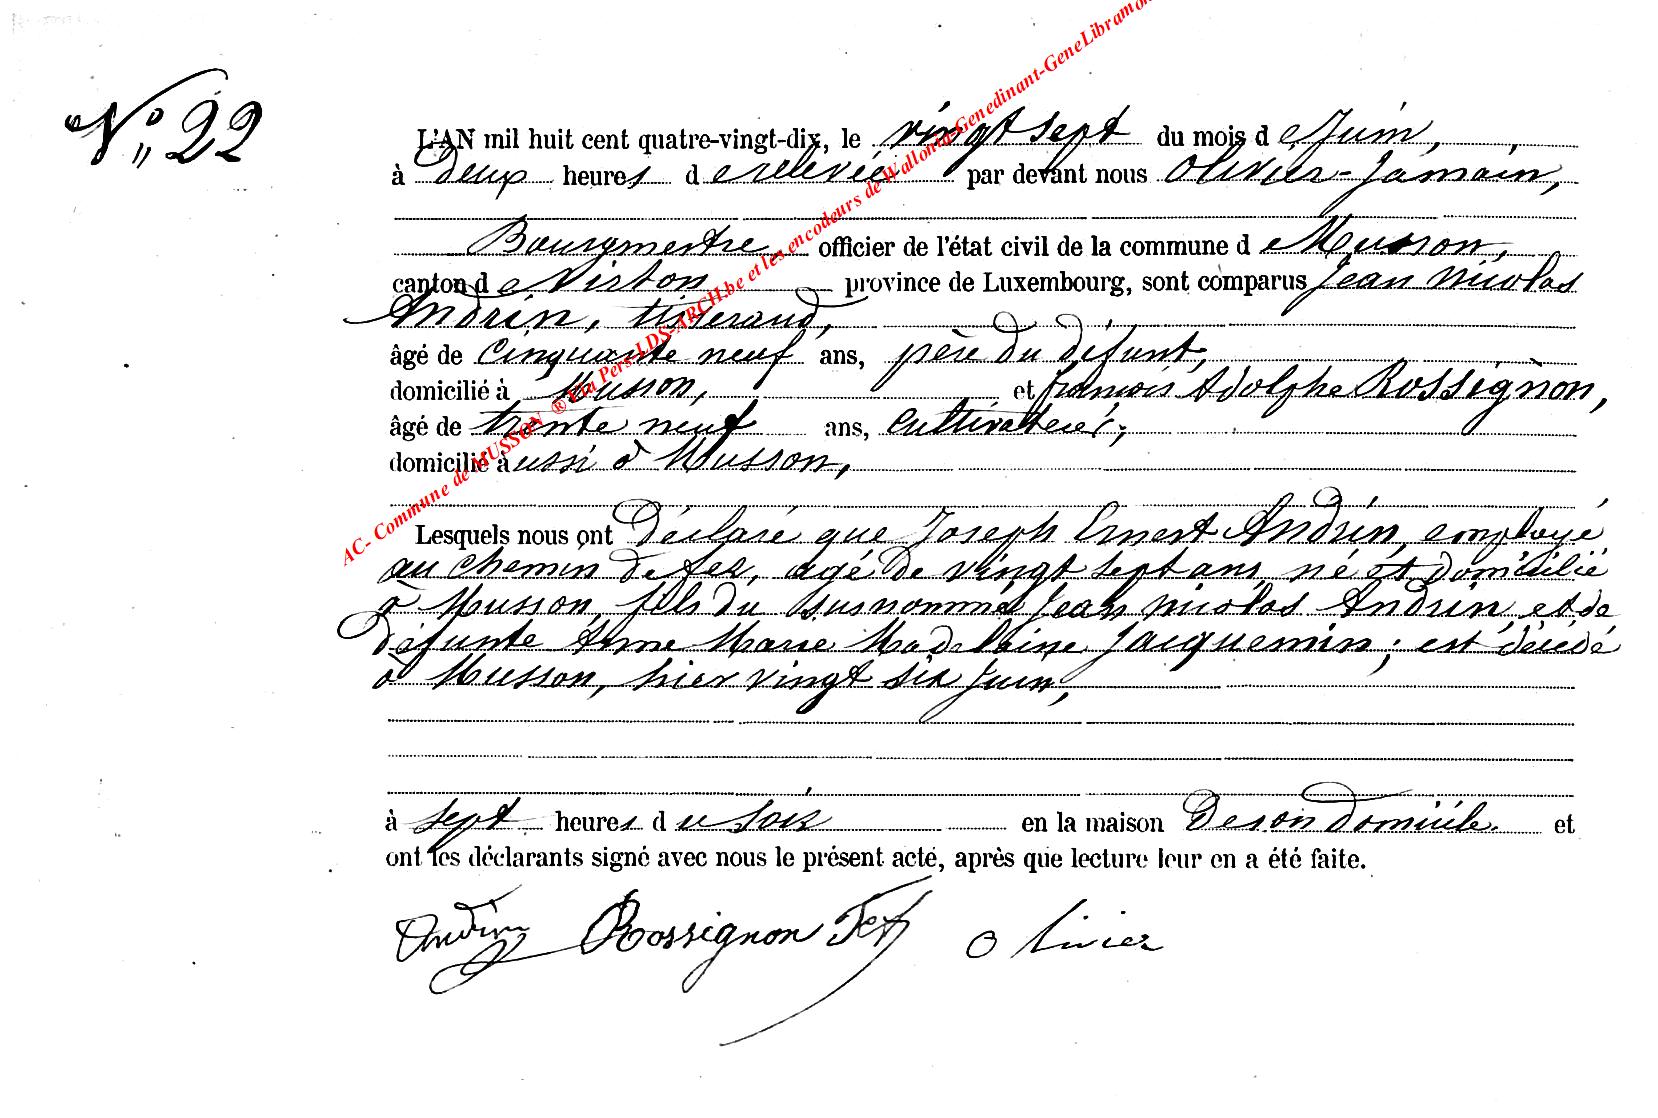 N° 22
L'AN mil huit cent quatre-vingt-dix, le vingt sept du mois de Juin,
à deux heures de relevée par devant nous Olivier-Jamain,
Bourgmestre, officier de l'état civil de la commune de Musson,
canton de Virton province de Luxembourg, sont comparus Jean Nicolas
Andrin, tisserand,
âgé de cinquante neuf ans, père du défunt,
domicilié à Musson, et françois Adolphe Rossignon,
âgé de trente neuf ans, cultivateur,
domicilié aussi à Musson,
Lesquels nous ont déclaré que Joseph Ernest Andrin, employé
au chemin de fer, agé de vingt sept ans, né et domicilié
à Musson, fils du susnommé Jean Nicolas Andrin, et de
défunte Anne Marie Madelaine Jacquemin; est décédé
à Musson, hier vingt six Juin,
à sept heures du soir en la maison de son domicile. et
ont les déclarants signé avec nous le présent acte, après que lecture leur en a été faite.
Andrin Rossignon Olivier
AC- Commune de MUSSON ® Via Pers-LDS-ARCH.be et les encodeurs de Wallonia-Genedinant-GeneLibramon